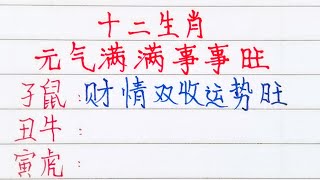 十二生肖
元气满满事事旺
子鼠:财情双收运势旺
丑牛:
寅虎: